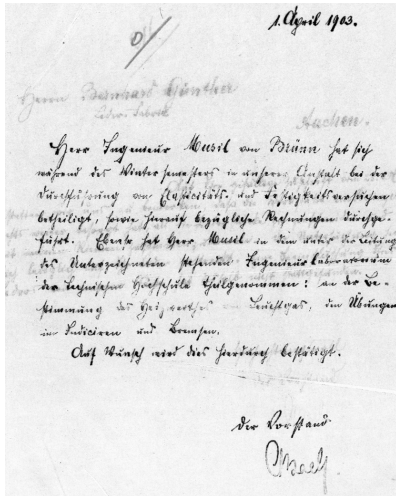 1. April 1903.
Herrn Bernhard Günther
Leder-Fabrik
Aachen.
Herr Ingenieur Musil von Brünn hat sich
während des Wintersemesters in unserer Anstalt bei der
Durchführung von Elasticitäts- und Festigkeitsversuchen
betheiligt, sowie hierauf bezügliche Rechnungen durchge-
führt. Ebenso hat Herr Musil in dem unter der Leitung
des Unterzeichneten stehenden Ingenieurlaboratorium
der Technischen Hochschule theilgenommen: an der Be-
stimmung des Heizwerthes Leuchtgas, den Übungen
im Indiciren und Bremsen.
Auf Wunsch wird dies hierdurch bestätigt.
Der Vorstand